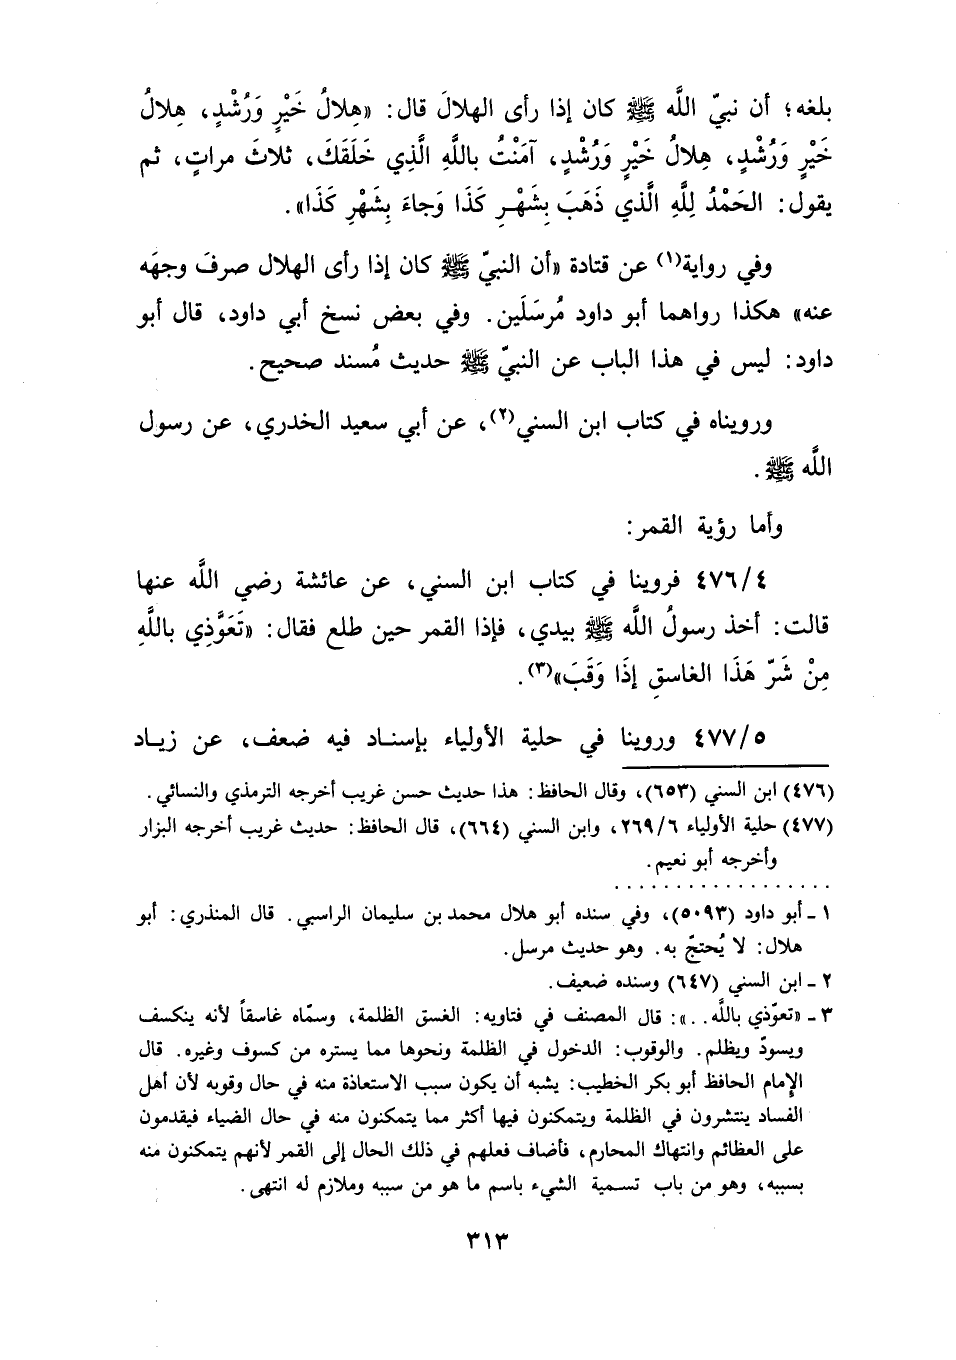 بلغه؛ أن نبيّ اللَّه ﷺ كان إذا رأى الهلالَ قال: «هِلالُ خَيْرٍ وَرُشْدٍ، هِلالُ
خَيْرٍ وَرُشْدٍ، هِلالُ خَيْرٍ وَرُشْدٍ، آمَنْتُ باللَّهِ الَّذِي خَلَقَكَ، ثلاثَ مراتٍ، ثم
يقول: الحَمْدُ لِلَّهِ الَّذي ذَهَبَ بِشَهْرِ كَذَا وَجاءَ بِشَهْرِ كَذَا».
وفي رواية(١) عن قتادة «أن النبيّ ﷺ كان إذا رأى الهلال صرفَ وجهَه
عنه» هكذا رواهما أبو داود مُرسَلَين. وفي بعض نسخ أبي داود، قال أبو
داود: ليس في هذا الباب عن النبيّ ﷺ حديث مُسند صحيح.
ورويناه في كتاب ابن السني(٢)، عن أبي سعيد الخدري، عن رسول
اللَّه ﷺ.
وأما رؤية القمر:
٤٧٦/٤ فروينا في كتاب ابن السني، عن عائشة رضي اللَّه عنها
قالت: أخذ رسولُ اللَّه ﷺ بيدي، فإذا القمر حين طلع فقال: «تَعَوَّذِي باللَّهِ
مِنْ شَرّ هَذَا الغاسقِ إذَا وَقَبَ»(٣).
٤٧٧/٥ وروينا في حلية الأولياء بإسنـاد فيه ضعف، عن زيـاد
(٤٧٦) ابن السني (٦٥٣)، وقال الحافظ: هذا حديث حسن غريب أخرجه الترمذي والنسائي.
(٤٧٧) حلية الأولياء ٢٦٩/٦، وابن السني (٦٦٤)، قال الحافظ: حديث غريب أخرجه البزار
وأخرجه أبو نعيم.
١ ـ أبو داود (٥٠٩٣)، وفي سنده أبو هلال محمد بن سليمان الراسبي. قال المنذري: أبو
هلال: لا يُحتجّ به. وهو حديث مرسل.
٢ ـ ابن السني (٦٤٧) وسنده ضعيف.
٣ ـ «تعوّذي باللَّه..»: قال المصنف في فتاويه: الغسق الظلمة، وسمّاه غاسقاً لأنه ينكسف
ويسودّ ويظلم. والوقوب: الدخول في الظلمة ونحوها مما يستره من كسوف وغيره. قال
الإمام الحافظ أبو بكر الخطيب: يشبه أن يكون سبب الاستعاذة منه في حال وقوبه لأن أهل
الفساد ينتشرون في الظلمة ويتمكنون فيها أكثر مما يتمكنون منه في حال الضياء فيقدمون
على العظائم وانتهاك المحارم، فأضاف فعلهم في ذلك الحال إلى القمر لأنهم يتمكنون منه
بسببه، وهو من باب تسـمية الشيء باسم ما هو من سببه وملازم له انتهى.
٣١٣